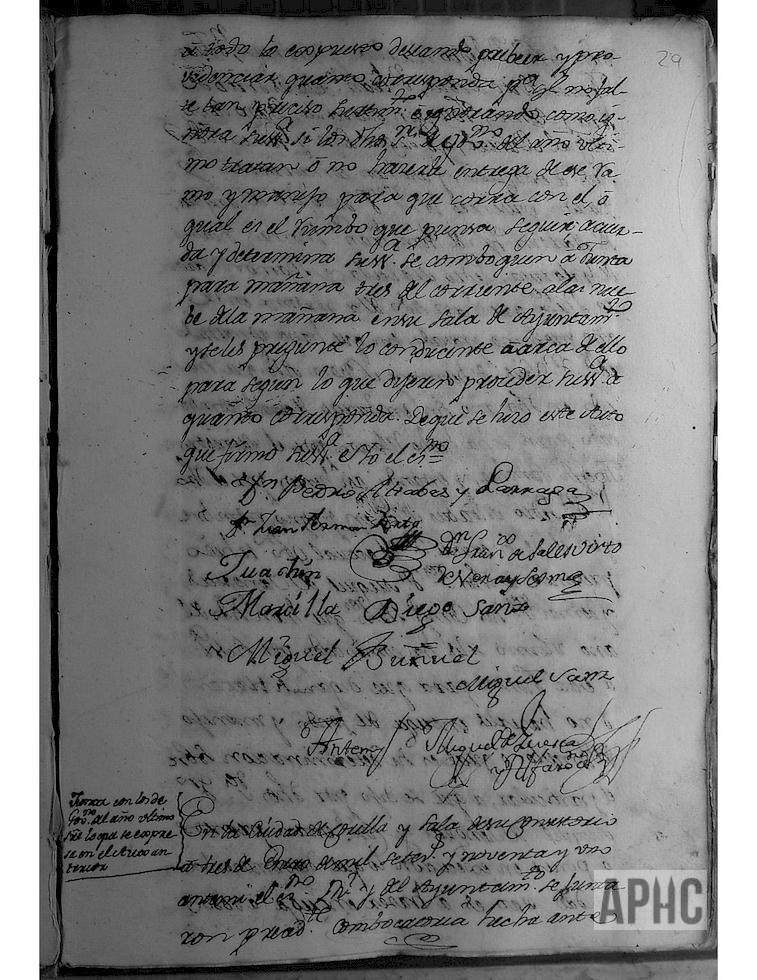 29
a todo lo expreso deseando saber y pro-
videnciar quanto corresponda p.ª q.e no fal-
te tan preciso
nora Su S.ª si los dhos S.res de Gov.no del año ulti-
mo tratan ó no hacerle entrega de ese Ra
mo y manejo para que corra con el, ó
qual es el rumbo que piensa seguir acuer-
da y determina Su S.ª se comboquen á Junta
para mañana tres del corriente a las nue-
be de la mañana en su Sala de Ayuntam.to
y se les pregunte lo conducente acerca de ello
para segun lo que dijeren proceder Su S.ª a
quanto corresponda. De que se hizo este Auto
que firmo Su S.ª é Yo el es.no
D.n Pedro Alrabes y Parraga
D.n Juan
D.n Fran.co de Sales Virto
de Vera y
Juachin
Marcilla Diego Sanz
Miguel Buñuel
Miguel Sanz
Antemi
Miguel de
y Alfaro
Junta con los de
Gov.no del año ultimo
sobre lo que se expre
sa en el Auto an
terior
En la Ciudad de Corella y Sala de su Consistorio
a tres de Enero de mil setez.s y noventa y uno
antemi el es.no R.l y del Ayuntam.to se junta
ron preced.te combocatoria hecha ante
APHC